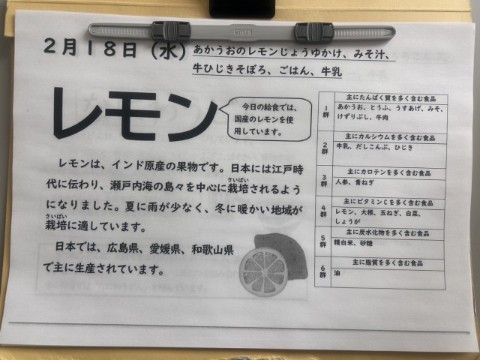 2月18日（水）あかうおのレモンじょうゆかけ、みそ汁、
牛ひじきそぼろ、ごはん、牛乳
レモン
今日の給食では、
国産のレモンを使
用しています。
レモンは、インド原産の果物です。日本には江戸時
代に伝わり、瀬戸内海の島々を中心に栽培されるよう
さいばい
になりました。夏に雨が少なく、冬に暖かい地域が
さいばい
栽培に適しています。
日本では、広島県、愛媛県、和歌山県
で主に生産されています。
1群
主にたんぱく質を多く含む食品
あかうお、とうふ、うすあげ、みそ、
けずりぶし、牛肉
2群
主にカルシウムを多く含む食品
牛乳、だしこんぶ、ひじき
3群
主にカロテンを多く含む食品
人参、青ねぎ
4群
主にビタミンCを多く含む食品
レモン、大根、玉ねぎ、白菜、
しょうが
5群
主に炭水化物を多く含む食品
精白米、砂糖
6群
主に脂質を多く含む食品
油